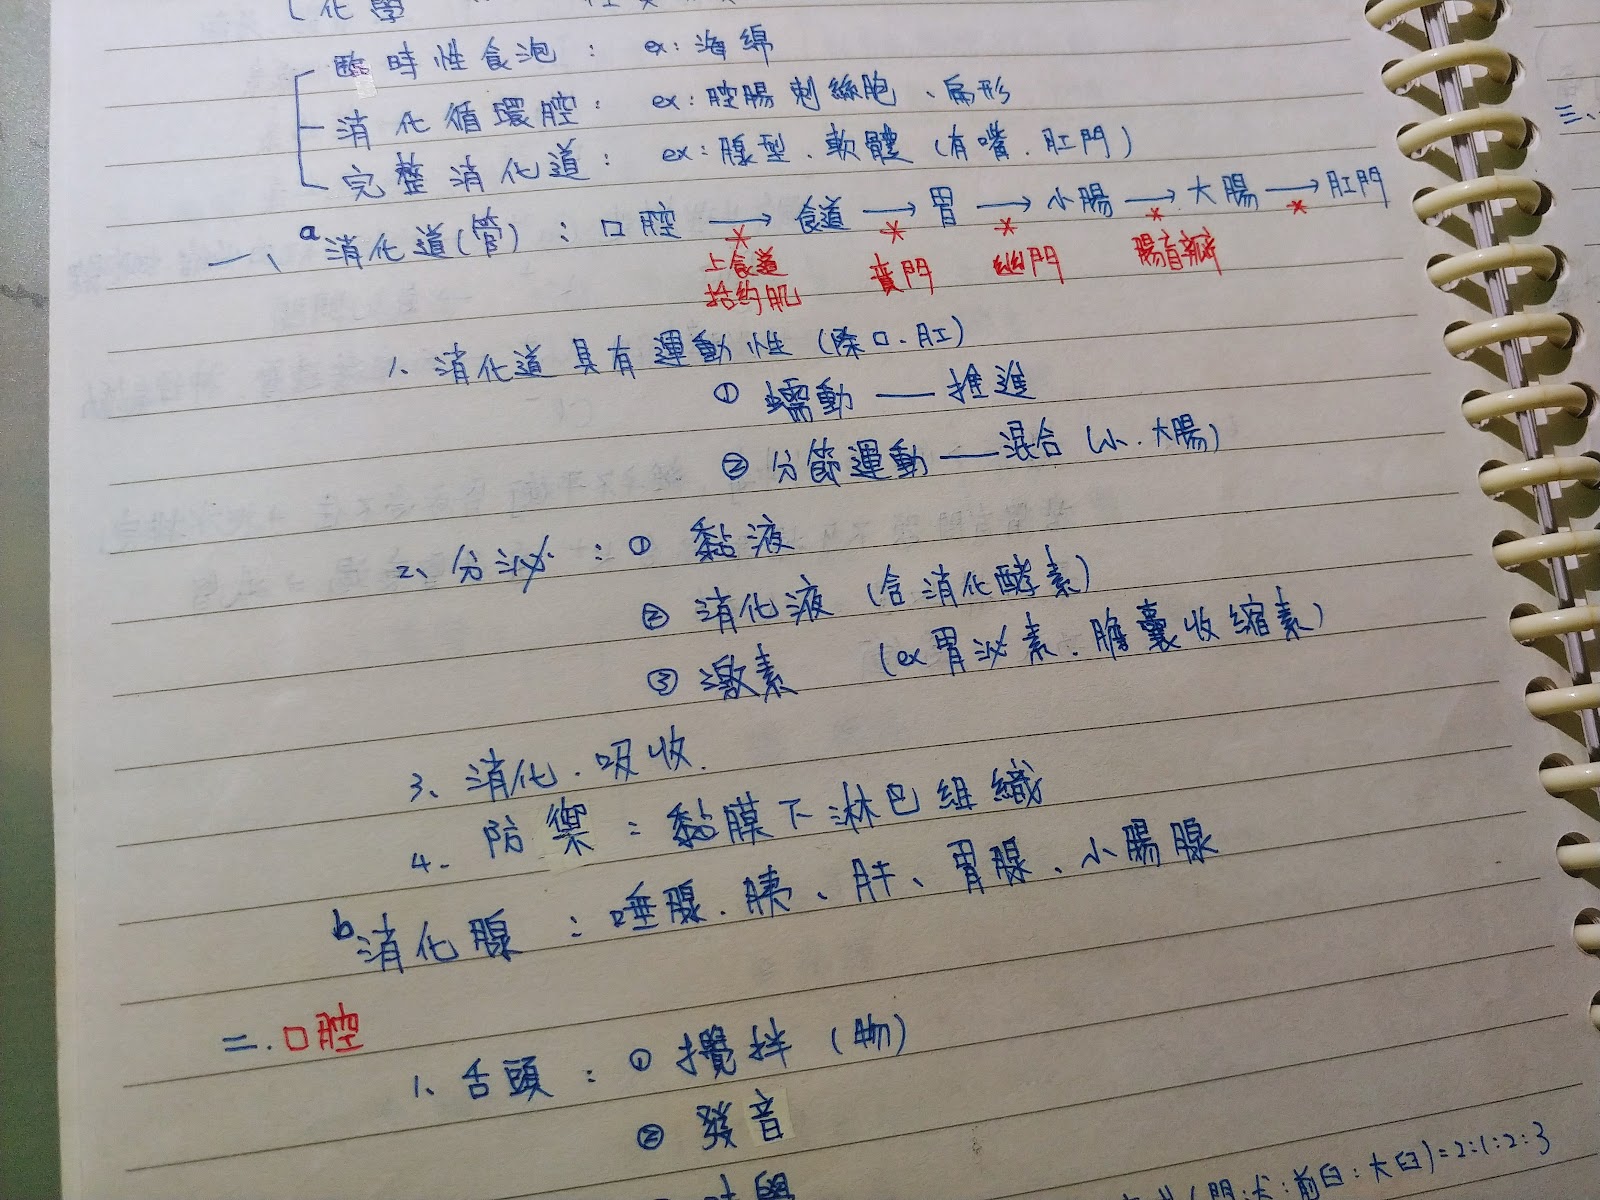 化學
臨時性食泡： ex：海綿
消化循環腔： ex：腔腸刺絲胞、扁形
完整消化道： ex：腺型．軟體（有嘴．肛門）
一、a消化道（管）：口腔 → 食道 → 胃 → 小腸 → 大腸 → 肛門
上食道括約肌 賁門 幽門 腸盲瓣
1、消化道具有運動性（除口．肛）
① 蠕動 — 推進
② 分節運動 — 混合（小．大腸）
2、分泌：① 黏液
② 消化液（含消化酵素）
③ 激素 （ex胃泌素．膽囊收縮素）
3、消化．吸收．
4．防禦：黏膜下淋巴組織
b消化腺：唾腺．胰、肝、胃腺、小腸腺
二．口腔
1、舌頭：① 攪拌（物）
② 發音
：前臼：大臼)=2:1:2:3